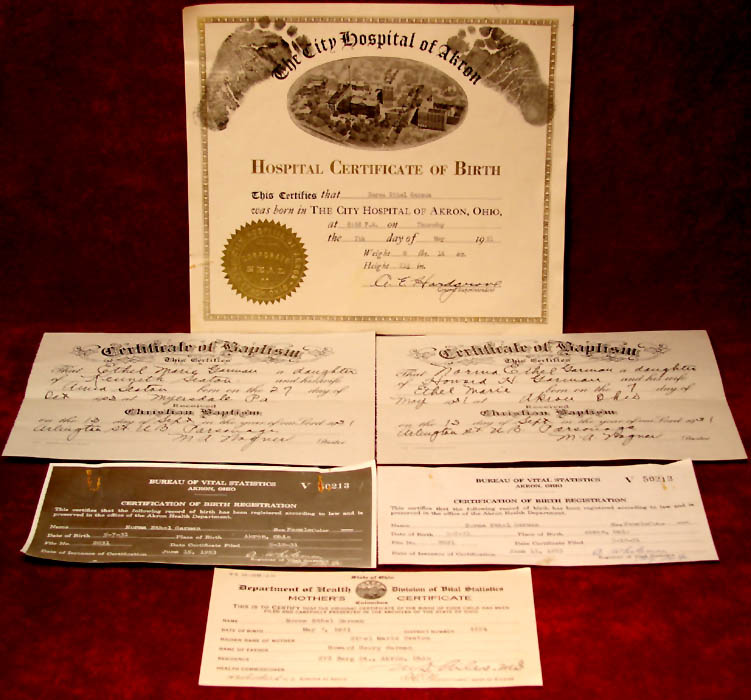 The City Hospital of Akron
HOSPITAL CERTIFICATE OF BIRTH
This Certifies that Norma Ethel Garman
was born in THE CITY HOSPITAL OF AKRON, OHIO,
at P.M. on Thursday
the 7th day of May 1931
Weight 8 lbs. 14 oz.
Height in.
SEAL
A. E. Hardgrove
Certificate of Baptism
This Certifies
That Ethel Marie Garman a daughter
of Kenneth Sexton and his wife
Sexton born on the 27 day of
Oct at Myersdale Pa
Received
Christian Baptism
on the 13 day of Sept in the year of our Lord 1931
Arlington St U B Parsonage
M A Wagner Pastor
Certificate of Baptism
This Certifies
That Norma Ethel Garman a daughter
of Howard H Garman and his wife
Ethel Marie born on the 7 day of
May 31 at Akron Ohio
Received
Christian Baptism
on the 13 day of Sept in the year of our Lord 1931
Arlington St U B Parsonage
M A Wagner Pastor
BUREAU OF VITAL STATISTICS V 50213
AKRON, OHIO
CERTIFICATION OF BIRTH REGISTRATION
This certifies that the following record of birth has been registered according to law and is
preserved in the office of the Akron Health Department.
Name Norma Ethel Garman Sex Female
Date of Birth 5-7-31 Place of Birth Akron, Ohio
File No. Date Certificate Filed
Date of Issuance of Certification June 15, 1953
BUREAU OF VITAL STATISTICS V 50213
AKRON, OHIO
CERTIFICATION OF BIRTH REGISTRATION
This certifies that the following record of birth has been registered according to law and is
preserved in the office of the Akron Health Department.
Name Norma Ethel Garman Sex Female
Date of Birth Place of Birth Akron, Ohio
File No. Date Certificate Filed
Date of Issuance of Certification June 15, 1953
State of Ohio
Department of Health Division of Vital Statistics
Columbus
MOTHER'S CERTIFICATE
THIS IS TO CERTIFY THAT THE ORIGINAL CERTIFICATE OF THE BIRTH OF YOUR CHILD HAS BEEN
FILED AND CAREFULLY PRESERVED IN THE ARCHIVES OF THE STATE OF OHIO
NAME Norma Ethel Garman
DATE OF BIRTH May 7, 1931 DISTRICT NUMBER
MAIDEN NAME OF MOTHER Ethel Marie Sexton
NAME OF FATHER Howard Henry Garman
RESIDENCE Berg St., Akron, Ohio
HEALTH COMMISSIONER